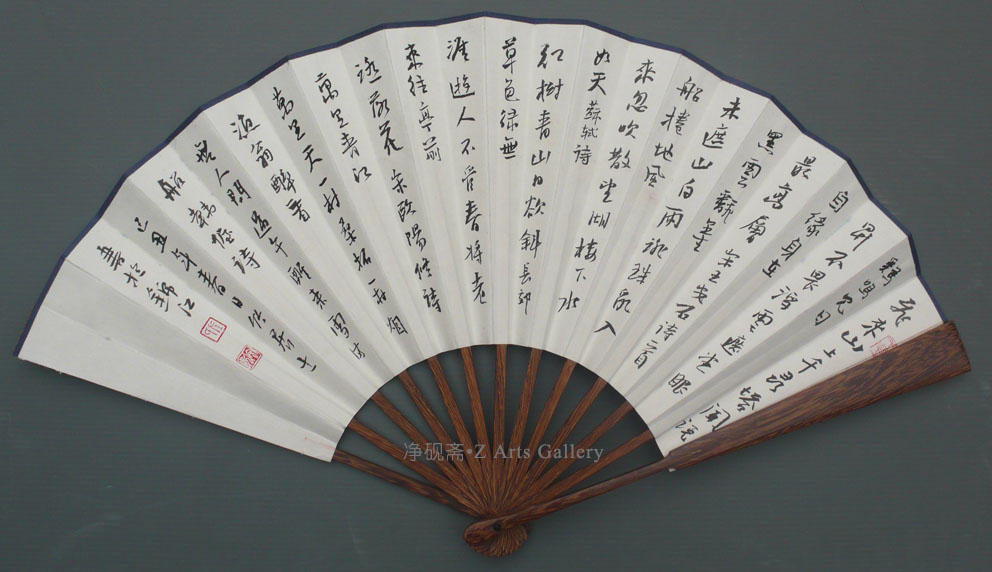 飛來山上千尋塔聞説
雞鳴見日
昇不畏浮雲遮望眼
自緣身在
最高層 宋王安石詩一首
黑雲翻墨
未遮山白雨跳珠亂入
船捲地風
來忽吹散望湖樓下水
如天 蘇軾詩
紅樹青山日欲斜長郊
草色綠無
涯遊人不管春將老
來往亭前
踏落花 宋歐陽修詩
萬里清江
萬里天一村桑柘一村煙
漁翁醉着
無人問過午醒來雪滿
船 韓偓詩
己丑年春日
書於錦江
净砚斋·Z Arts Gallery